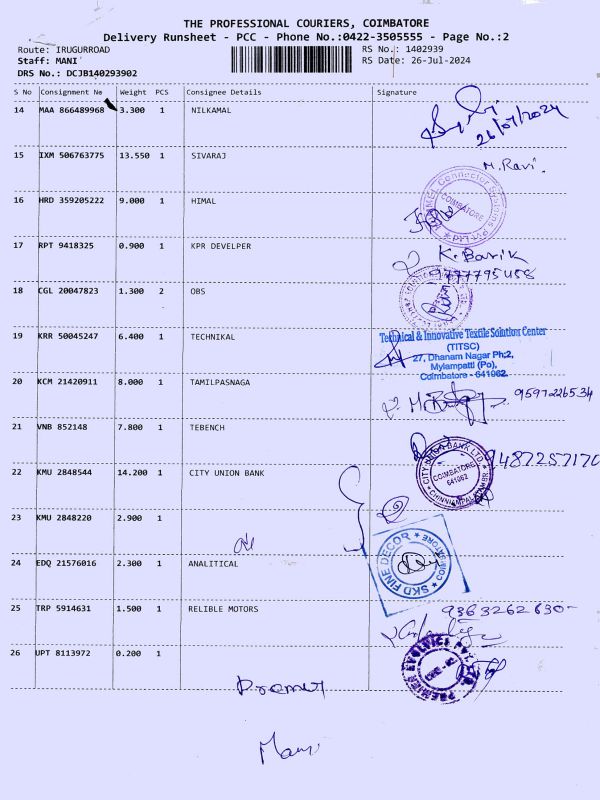 THE PROFESSIONAL COURIERS, COIMBATORE
Delivery Runsheet - PCC - Phone No.:0422-3505555 - Page No.:2
Route: IRUGURROAD RS No.: 1402939
Staff: MANI RS Date: 26-Jul-2024
DRS No.: DCJB140293902
S No Consignment No Weight PCS Consignee Details Signature
14 MAA 866489968 3.300 1 NILKAMAL
26/07/2024
15 IXM 506763775 13.550 1 SIVARAJ
M. Ravi.
16 HRD 359205222 9.000 1 HIMAL
COIMBATORE
17 RPT 9418325 0.900 1 KPR DEVELPER
K. Barik
9777795458
18 CGL 20047823 1.300 2 OBS
19 KRR 50045247 6.400 1 TECHNIKAL
Technical & Innovative Textile Solution Center
(TITSC)
27, Dhanam Nagar Ph:2,
Mylampatti (Po),
Coimbatore - 641062.
20 KCM 21420911 8.000 1 TAMILPASNAGA
9597226534
21 VNB 852148 7.800 1 TEBENCH
9487257170
22 KMU 2848544 14.200 1 CITY UNION BANK
CITY UNION BANK LTD
COIMBATORE
641062
23 KMU 2848220 2.900 1
24 EDQ 21576016 2.300 1 ANALITICAL
SKD FINE DECOR
25 TRP 5914631 1.500 1 RELIBLE MOTORS
9363262630
26 UPT 8113972 0.200 1
Mani